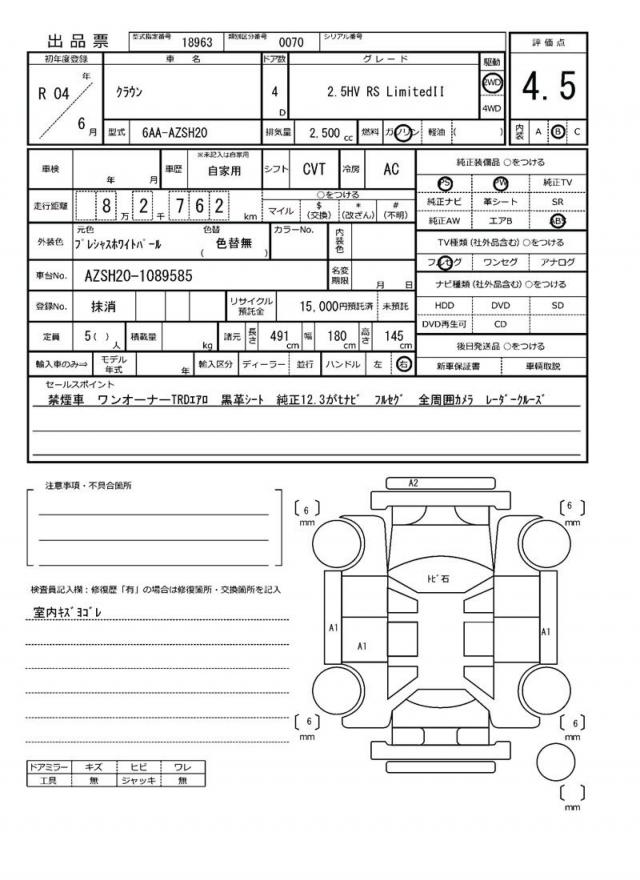 出品票 型式指定番号 18963 類別区分番号 0070 シリアル番号
初年度登録 車名 ドア数 グレード 駆動 評価点
R 04 年 6 月 クラウン 4 D 2.5HV RS LimitedII 2WD 4WD 4.5
型式 6AA-AZSH20 排気量 2,500 cc 燃料 ガソリン 軽油 ( ) 内装 A B C
車検 年 月 車歴 ※未記入は自家用 自家用 シフト CVT 冷房 AC 純正装備品 ○をつける
PS PW 純正TV
走行距離 8 万 2 千 7 6 2 km ○をつける マイル $ (交換) * (改ざん) # (不明) 純正ナビ 革シート SR
純正AW エアB ABS
外装色 元色 プレシャスホワイトパール 色替 ( 色替無 ) カラーNo. 内装色 TV種類 (社外品含む) ○をつける
フルセグ ワンセグ アナログ
車台No. AZSH20-1089585 名変期限 月 日 ナビ種類 (社外品含む) ○をつける
登録No. 抹消 リサイクル預託金 15,000円預託済 未預託 HDD DVD SD
DVD再生可 CD
定員 5( ) 人 積載量 kg 諸元 長さ 491 cm 幅 180 cm 高さ 145 cm 後日発送品 ○をつける
輸入車のみ⇒ モデル年式 年 輸入区分 ディーラー 並行 ハンドル 左 右 新車保証書 車輌取説
セールスポイント
禁煙車 ワンオーナーTRDエアロ 黒革シート 純正12.3がセナビ フルセグ 全周囲カメラ レーダークルーズ
注意事項・不具合箇所
検査員記入欄:修復歴「有」の場合は修復箇所・交換箇所を記入
室内キズヨゴレ
A2
[ 6 ] mm
[ 6 ] mm
トビ石
A1
A1
A1
[ 6 ] mm
[ 6 ] mm
[ ] mm
ドアミラー キズ ヒビ ワレ
工具 無 ジャッキ 無